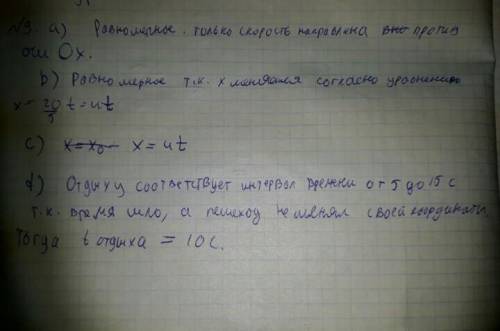 №3. а) Равномерное. только скорость направлена вно против
оси Ох.
b) Равномерное т.к. х меняется согласно уравнению
x = 20/5 t = 4t
c) x = x₀ x = 4t
d) Отдыху соответствует интервал времени от 5 до 15 с
т.к. время шло, а пешеход не менял своей координаты
Тогда t отдыха = 10 с.